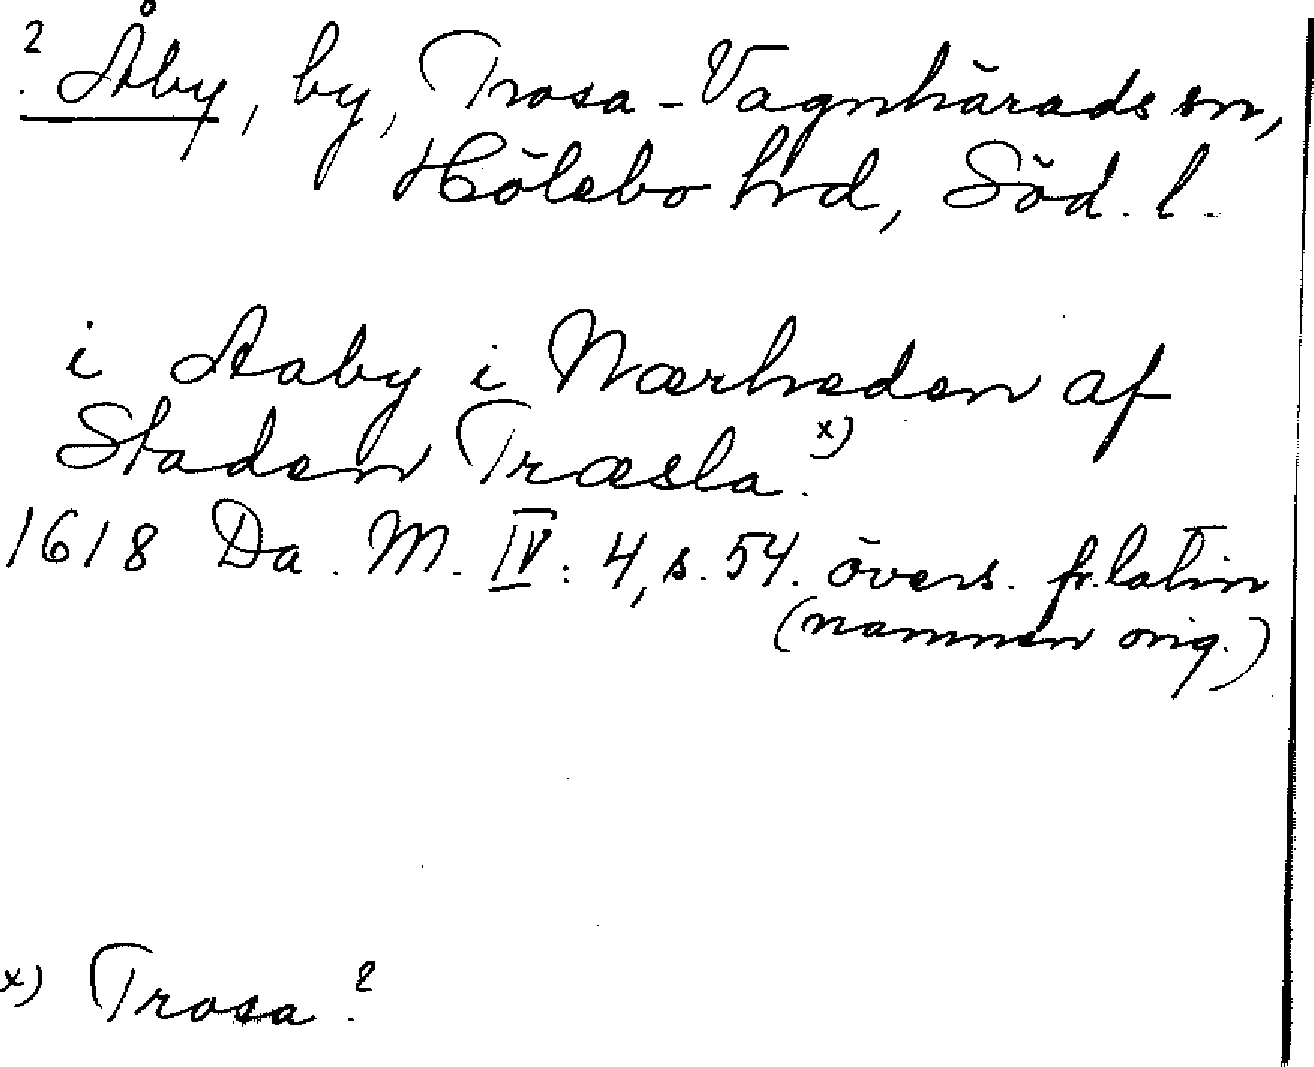 ? Åby, by, Trosa-Vagnhärads sn,
Hölebo hrd, Söd. l.
i Aaby i Nærheden af
Staden Træsla. x)
1618 Da. M. IV: 4, s. 54. övers. fr. latin
(namnen orig.)
x) Trosa?